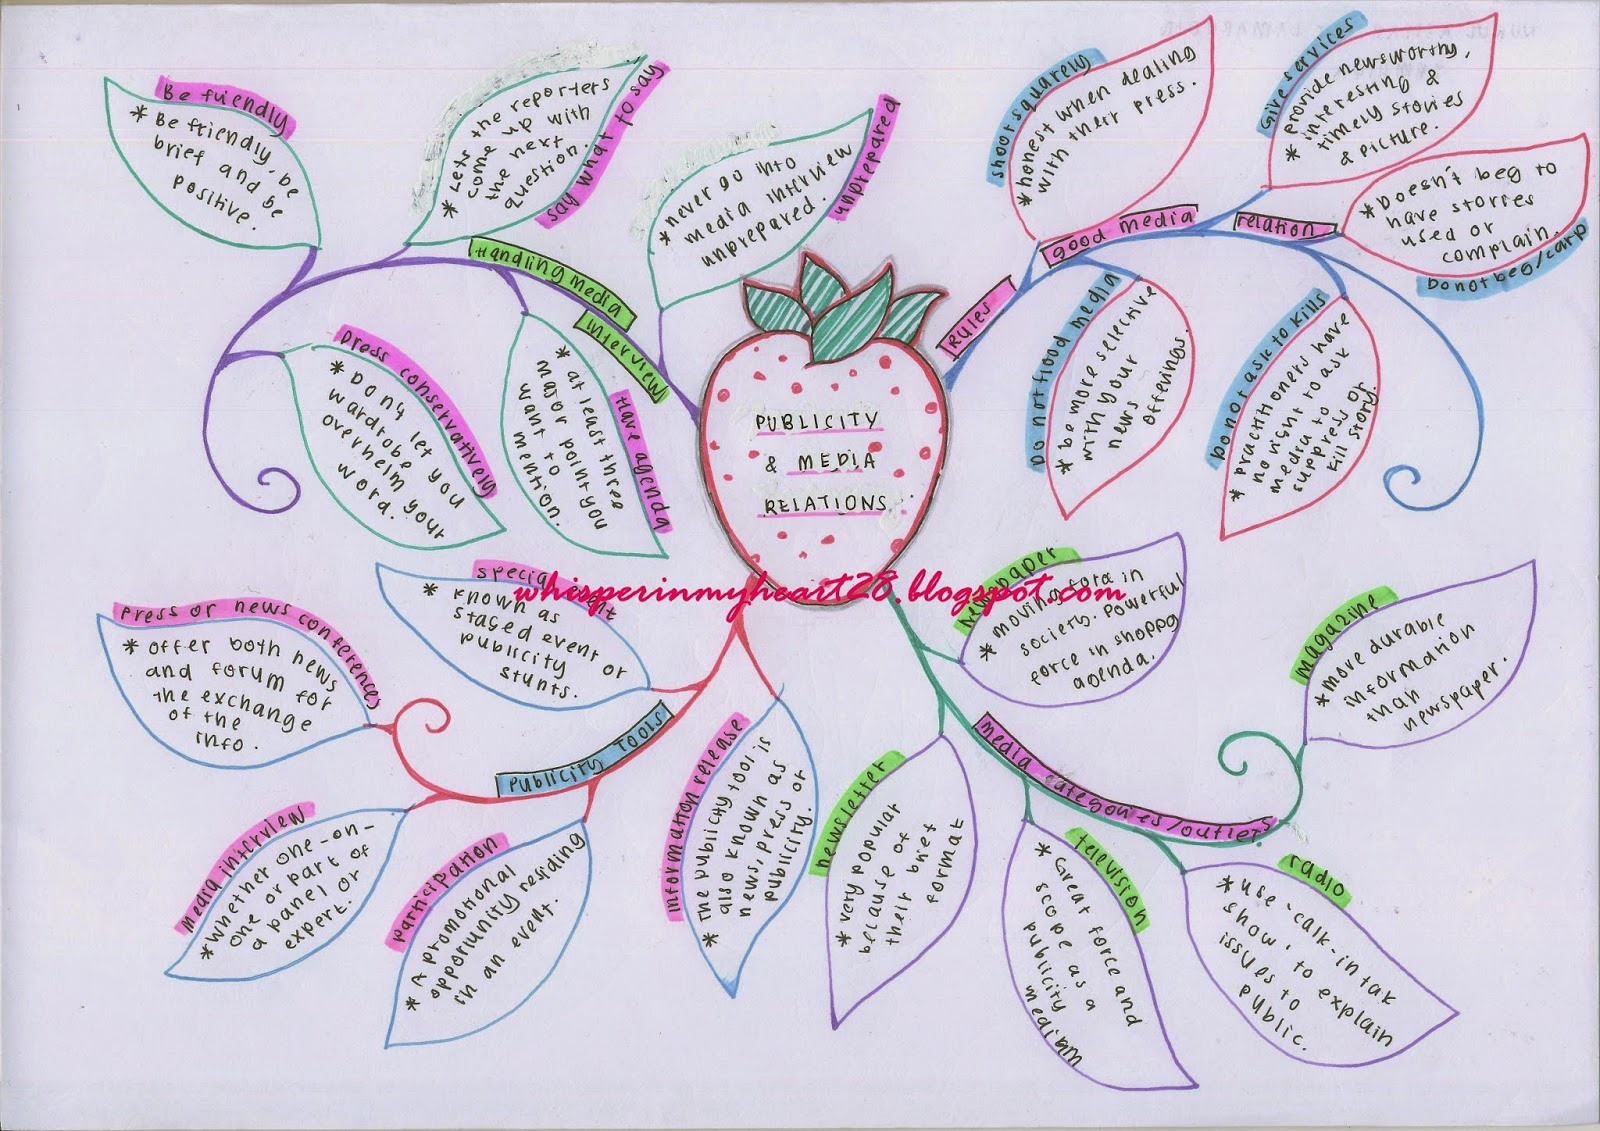 PUBLICITY
& MEDIA
RELATIONS
whisperinmyheart28.blogspot.com
Handling media
Interview
Be friendly
* Be friendly, be
brief and be
positive.
say what to say
* Lets the reporters
come up with
the next
question.
unprepared
* never go into
media interview
unprepared.
press conservatively
* Don't let you
wardrobe
overhelm your
word.
Have agenda
* at least three
major point you
want to
mention.
Rules
good media
relation
shoot squarely
* honest when dealing
with their press.
Give services
* provide newsworthy,
interesting &
timely stories
& picture.
* Doesn't beg to
have stories
used or
complain.
Do not beg/carp
Do not flood media
* be more selective
with your
news
offerings.
Do not ask to kills
* practitioners have
no right to ask
media to
suppress or
kill story.
Publicity Tools
special event
* known as
staged event or
publicity
stunts.
press or news conferences
* offer both news
and forum for
the exchange
of the
info.
media interview
* whether one-on-
one or part of
a panel or
expert.
participation
* A promotional
opportunity residing
in an event.
information release
* The publicity tool is
also known as
news, press or
publicity.
media categories/outlets
newspaper
* moving force in
society. Powerful
force in shoppg
agenda.
magazine
* more durable
information
than
newspaper.
newsletter
* very popular
because of
their brief
format
television
* Great force and
scope as a
publicity
medium
radio
* use 'calk-in tak
show' to explain
issues to
public.